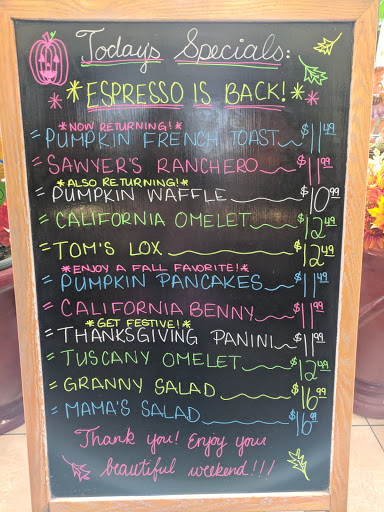 Todays Specials:
*ESPRESSO IS BACK!*
*NOW RETURNING!*
= PUMPKIN FRENCH TOAST $11.49
= SAWYER'S RANCHERO $11.99
*ALSO RETURNING!*
= PUMPKIN WAFFLE $10.99
= CALIFORNIA OMELET $12.49
= TOM'S LOX $12.49
*ENJOY A FALL FAVORITE!*
= PUMPKIN PANCAKES $11.49
= CALIFORNIA BENNY $11.99
*GET FESTIVE!*
= THANKSGIVING PANINI $11.99
= TUSCANY OMELET $12.49
= GRANNY SALAD $16.99
= MAMA'S SALAD $16.99
Thank you! Enjoy your
beautiful weekend!!!